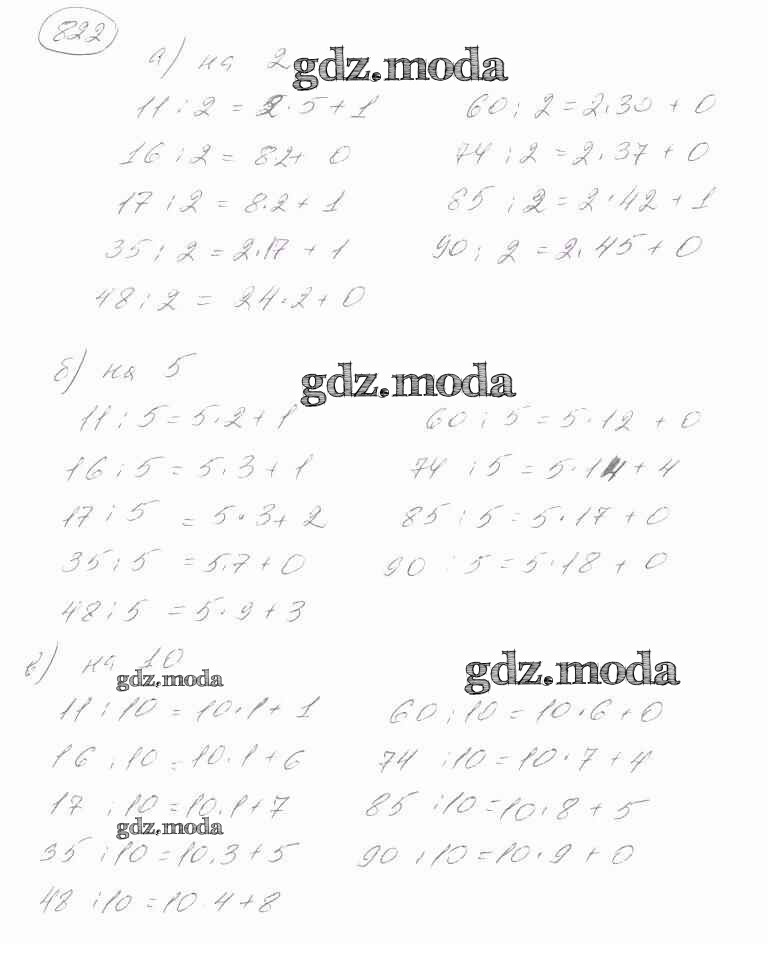 822
а) на 2
gdz.moda
11 : 2 = 2·5+1 60 : 2 = 2·30 + 0
16 : 2 = 8·2+ 0 74 : 2 = 2·37 + 0
17 : 2 = 8·2 + 1 85 : 2 = 2·42 + 1
35 : 2 = 2·17 + 1 90 : 2 = 2·45 + 0
48 : 2 = 24·2 + 0
б) на 5
gdz.moda
11 : 5 = 5·2 + 1 60 : 5 = 5·12 + 0
16 : 5 = 5·3 + 1 74 : 5 = 5·14 + 4
17 : 5 = 5·3 + 2 85 : 5 = 5·17 + 0
35 : 5 = 5·7 + 0 90 : 5 = 5·18 + 0
48 : 5 = 5·9 + 3
в) на 10
gdz.moda gdz.moda
11 : 10 = 10·1 + 1 60 : 10 = 10·6 + 0
16 : 10 = 10·1 + 6 74 : 10 = 10·7 + 4
17 : 10 = 10·1 + 7 85 : 10 = 10·8 + 5
gdz.moda
35 : 10 = 10·3 + 5 90 : 10 = 10·9 + 0
48 : 10 = 10·4 + 8